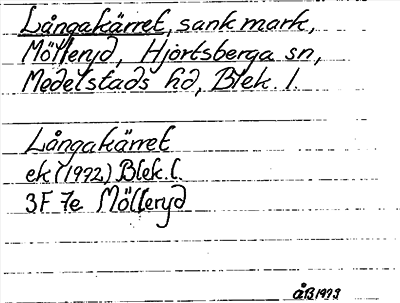 Långakärret, sank mark,
Mölleryd, Hjortsberga sn,
Medelstads hd, Blek. l.
Långakärret
ek (1972) Blek. l.
3F 7e Mölleryd
ÅB 1973